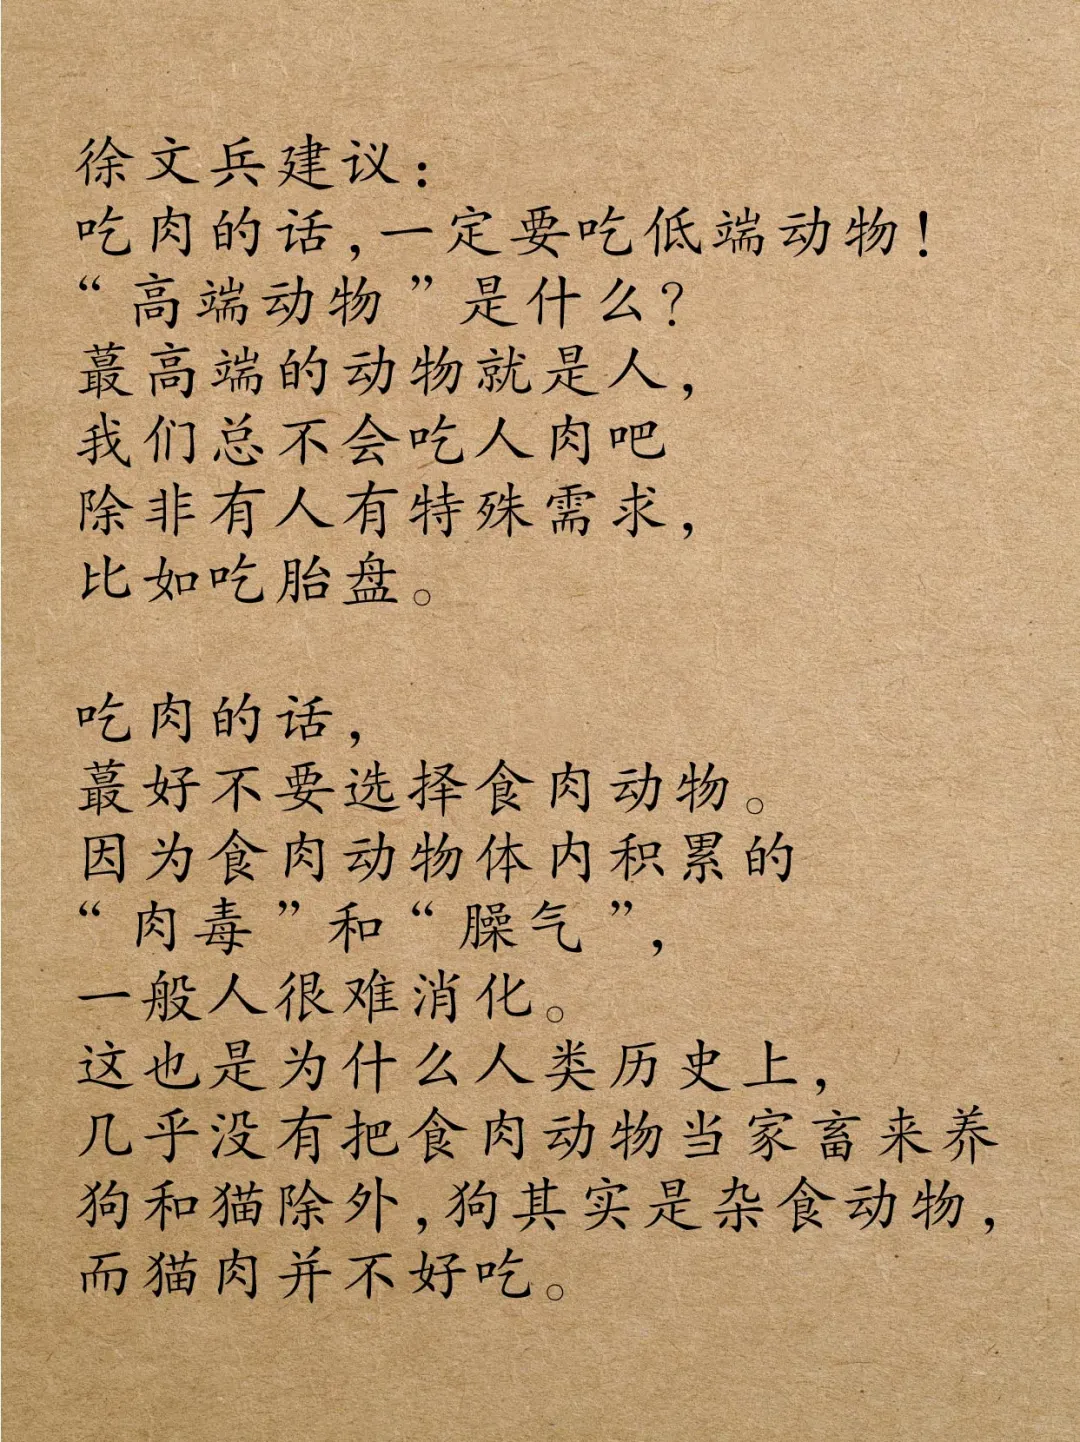 徐文兵建议：
吃肉的话，一定要吃低端动物！
“高端动物”是什么？
蕞高端的动物就是人，
我们总不会吃人肉吧
除非有人有特殊需求，
比如吃胎盘。
吃肉的话，
蕞好不要选择食肉动物。
因为食肉动物体内积累的
“肉毒”和“臊气”，
一般人很难消化。
这也是为什么人类历史上，
几乎没有把食肉动物当家畜来养
狗和猫除外，狗其实是杂食动物，
而猫肉并不好吃。